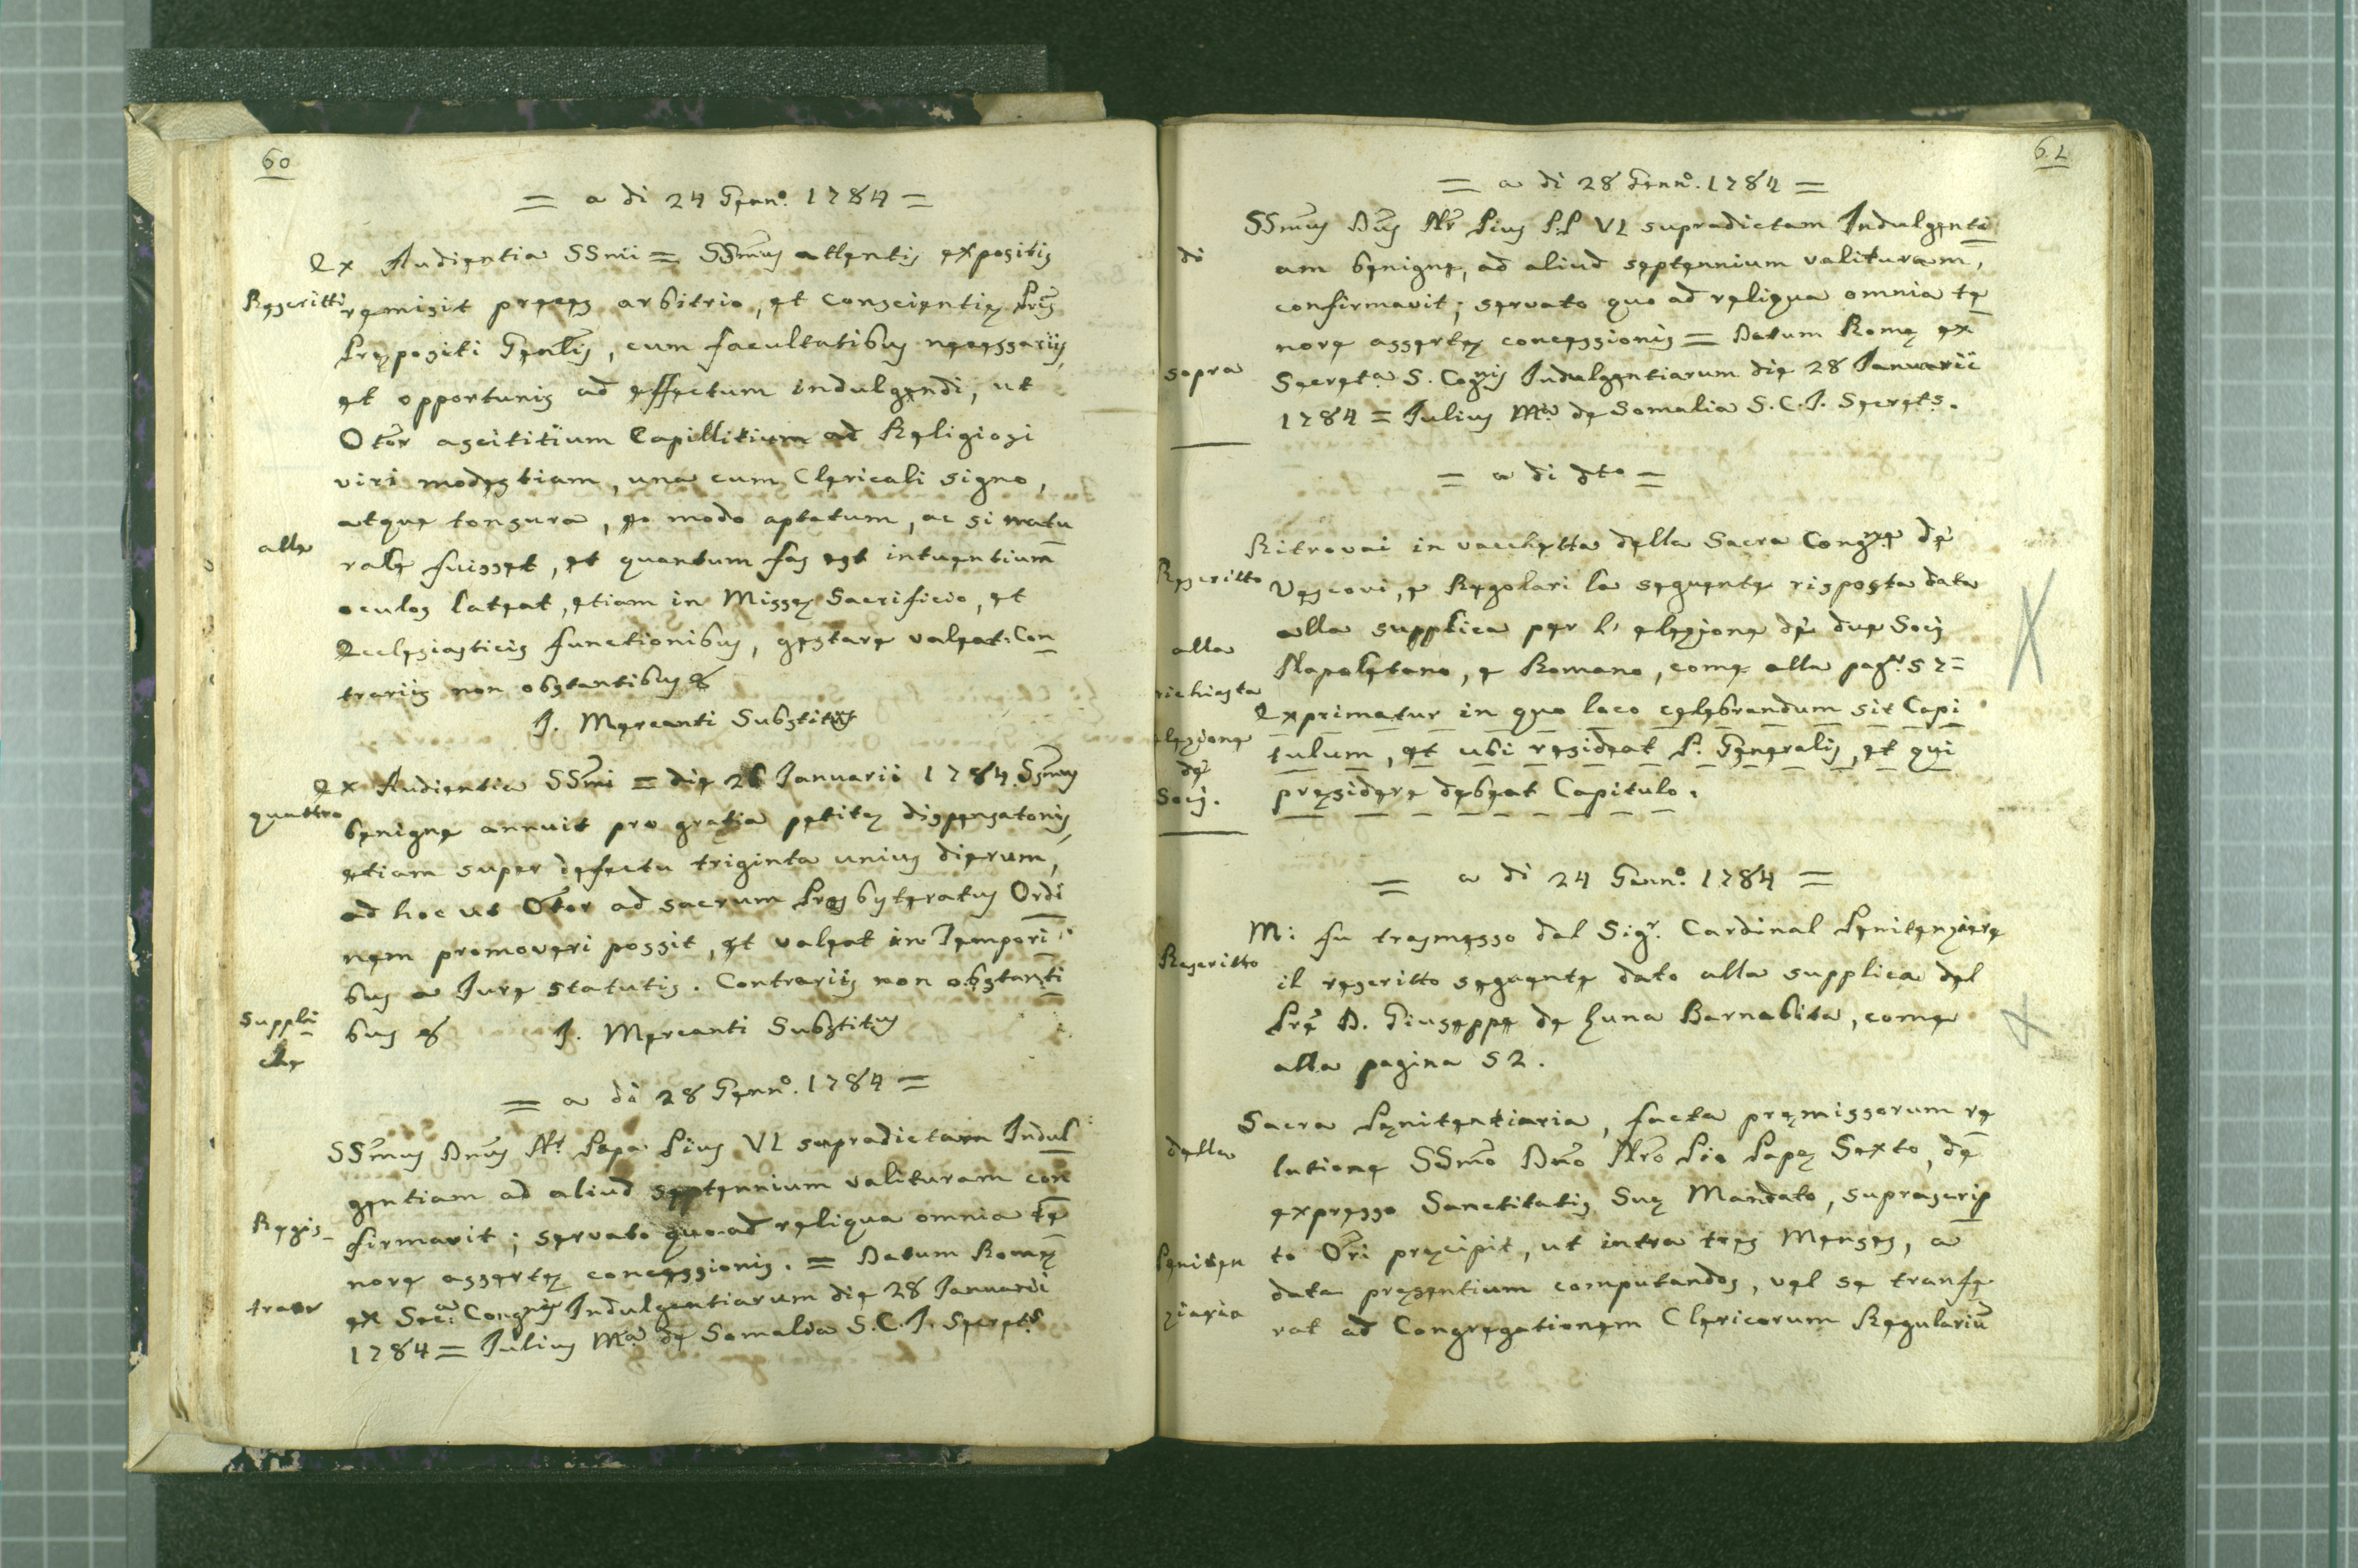 60
= a di 24 Genn.º 1784 =
Ex Audientia SSmi = SSmus attentis expositis
Rescritti
remisit preces arbitrio, et conscientię Pris
Prępositi Genlis, cum facultatibus necessariis,
et opportunis ad effectum indulgendi, ut
Otor ascititium Capillitium ad Religiosi
viri modestiam, una cum Clericali signo,
atque tonsura, eo modo aptatum, ac si natu
alle
rale fuisset, et quantum fas est intuentium
oculos lateat, etiam in Missę Sacrificio, et
Ecclesiasticis functionibus, gestare valeat. Con
trariis non obstantibus &
J. Mercanti Substitus
Ex Audientia SSmi = die 26 Januarii 1784. SSmus
quattro
benigne annuit pro gratia petitę dispensatonis,
etiam super defectu triginta unius dierum,
ad hoc ut Otor ad sacrum Presbyteratus Ordi
nem promoveri possit, et valeat in Tempori
bus a Jure statutis. Contrariis non obstanti
Suppli
che
bus & J. Mercanti Substitus
= a di 28 Genn.º 1784 =
SSmus Dnus Nr Papa Pius VI supradictam Indul
gentiam ad aliud septennium valituram con
Regis_
firmavit; servato quo ad reliqua omnia te
nore assertę concessionis. = Datum Romę
trate
ex Sec.a Congnis Indulgentiarum die 28 Januarii
1784 = Julius M.a de Somalia S.C.I. Secrets
61
= a di 28 Genn.º 1784 =
SSmus Dnus Nr Pius P.P VI supradictam Indulgenti
di
am benigne, ad aliud septennium valituram,
confirmavit; servato quo ad reliqua omnia te
nore assertę concessionis = Datum Romę ex
sopra
Secret.a S. Cognis Indulgentiarum die 28 Januarii
1784 = Julius M.a de Somalia S.C.I. Secrets.
= a di dto =
Ritrovai in vacchetta della Sacra Congne de'
Rescritto
Vescovi, e Regolari la seguente risposta data
alla supplica per l' elezione de' due Socj
alla
Napoletano, e Romano, come alla pag.a 57=
richiesta
Exprimatur in quo loco celebrandum sit Capi
elezione
tulum, et ubi resideat P. Generalis, et qui
de'
Socj.
pręsidere debeat Capitulo.
= a di 24 Genn.º 1784 =
M: fu trasmesso dal Sigr. Cardinal Penitenziere
Rescritto
il rescritto seguente dato alla supplica del
Pre D. Giuseppe de Luna Barnabita, come
alla pagina 52.
Sacra Penitentiaria, facta pręmissorum re
della
latione SSmo Dno Nro Pio Papę Sexto, de
expresso Sanctitatis Suę Mandato, suprascrip
Peniten
to Ori pręcipit, ut intra tres Menses, a
data pręsentium computandos, vel se transfe
ziaria
rat ad Congregationem Clericorum Regulariu